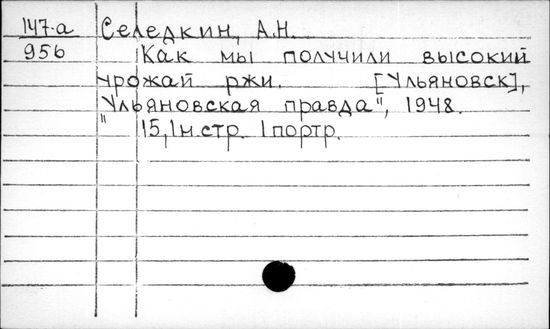 147-а Селедкин, А.Н.
956 Как мы получили высокий
урожай ржи. [Ульяновск],
"Ульяновская правда", 1948.
15,1н.стр. 1портр.